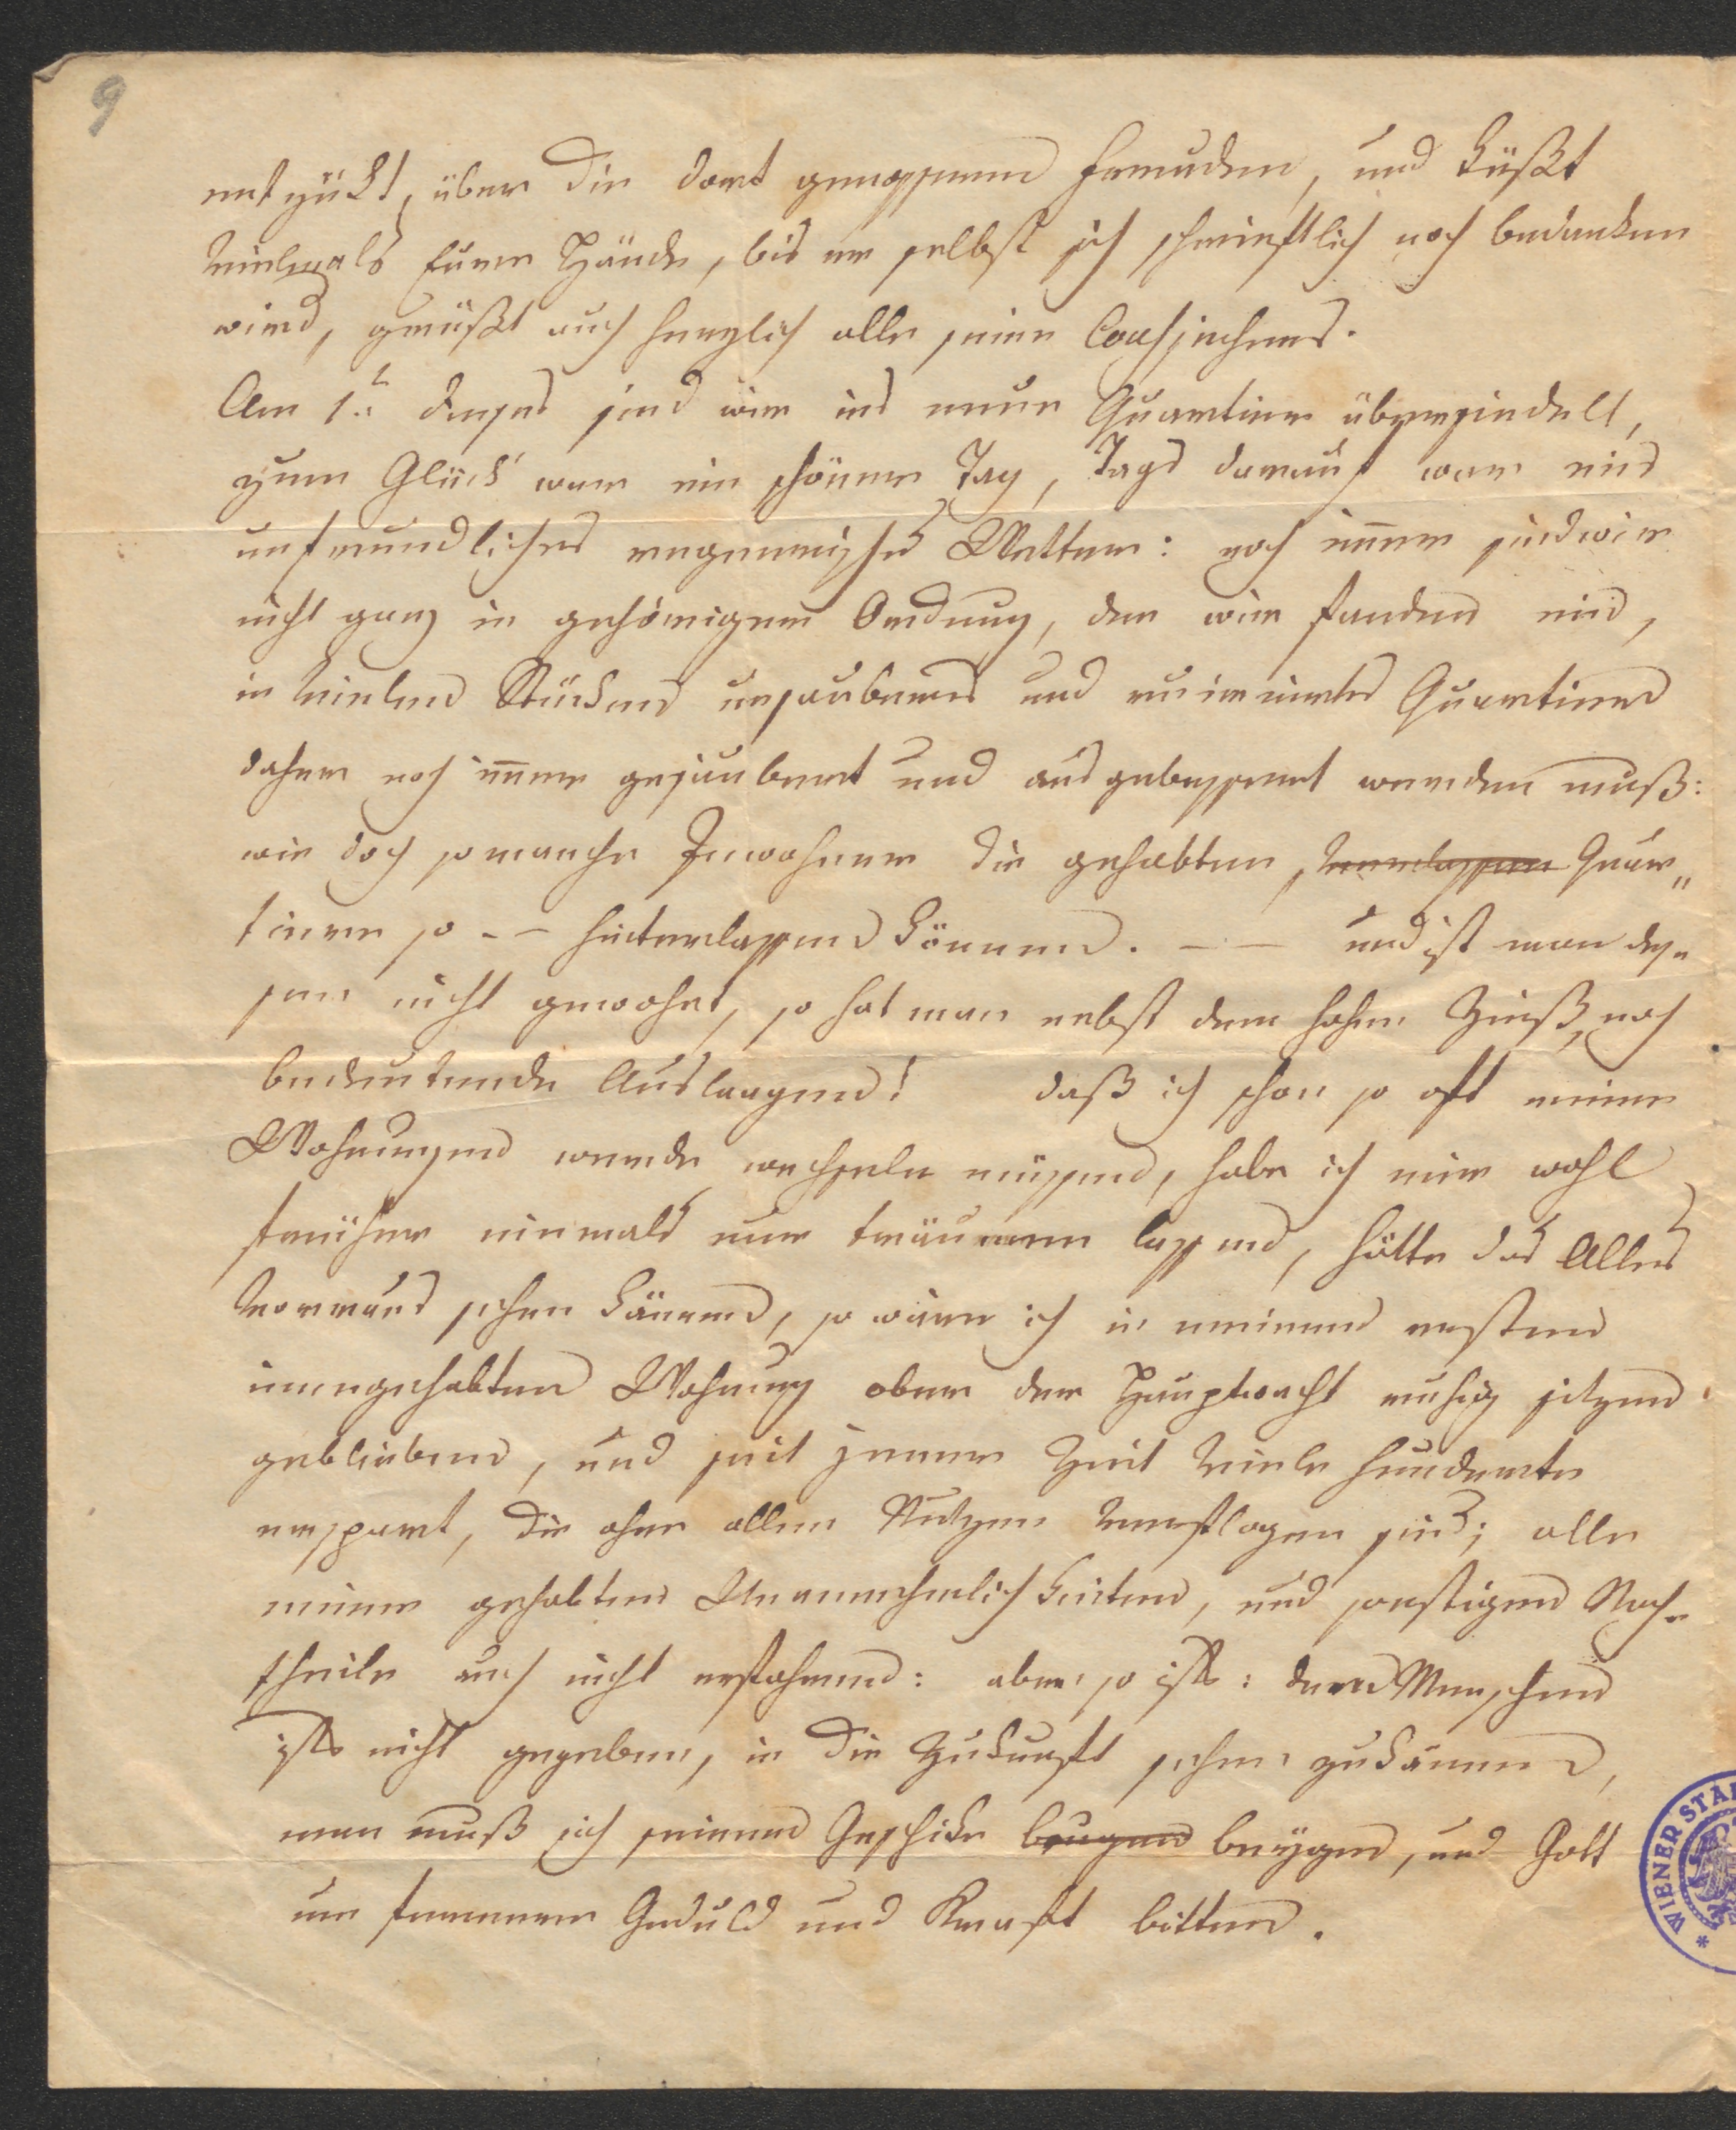 9
entzükt, über die dort genossenen Freuden, und küßt
vielmals Eüere Hände, bis er selbst sich schrieftlich noch bedanken
wird, grüßt auch herzlich alle seine Cousinchens.
Am 1t: dieses sind wir ins neue Quartier übersiedelt,
zum Glück war ein schöner Tag, Tags darauf war ein
unfreundliches regnerisches Wetter: noch im̅er sind wir
nicht ganz in gehöriger Ordnung, den wir fanden ein,
in vielen Stücken unsauberes und ruinirtes Quartier
daher noch im̅er gesäubert und ausgebessert werden muß:
wie doch so manche Inwohner die gehabten, verlassen Quar„
tiere so -- hinterlassen können. — — und ist man des„
sen nicht gewohnt, so hat man nebst dem hohen Zinß, noch
bedeutende Auslaagen! daß ich schon so oft meine
Wohnungen werde wechseln müssen, habe ich mir wohl
früher niemals nur träumen lassen, hätte das Alles
voraus sehen können, so wäre ich in meinen ersten
innegehabten Wohnung ober der Hauptwacht ruhig sitzen
geblieben, und seit jener Zeit viele hunderte
erspart, die ohne allen Nutzen verflogen sind; alle
meine gehabten Unannehmlichkeiten, und sonstigen Nach„
theile auch nicht erfahren: aber so ists: dem Menschen
ists nicht gegeben, in die Zukunft sehen zu können,
man muß sich seinen Geschicke beugen beügen, und Gott
um fernere Geduld und Kraft bitten.
* WIENER STA